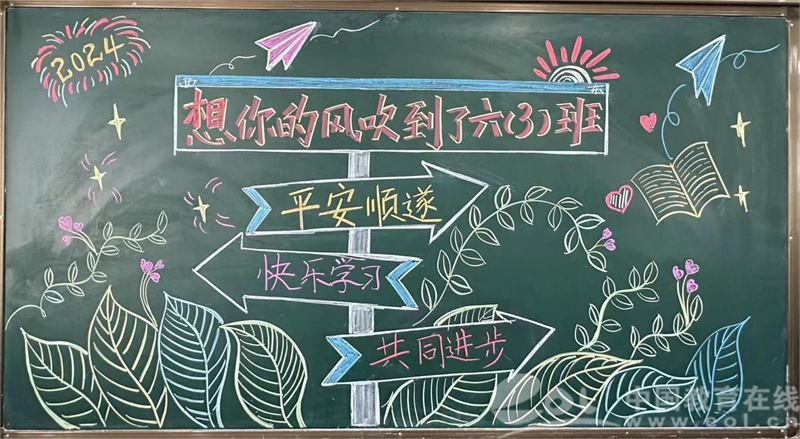 2024
想你的风吹到了六(3)班
平安顺遂
快乐学习
共同进步
eol 中国教育在线
www.eol.cn